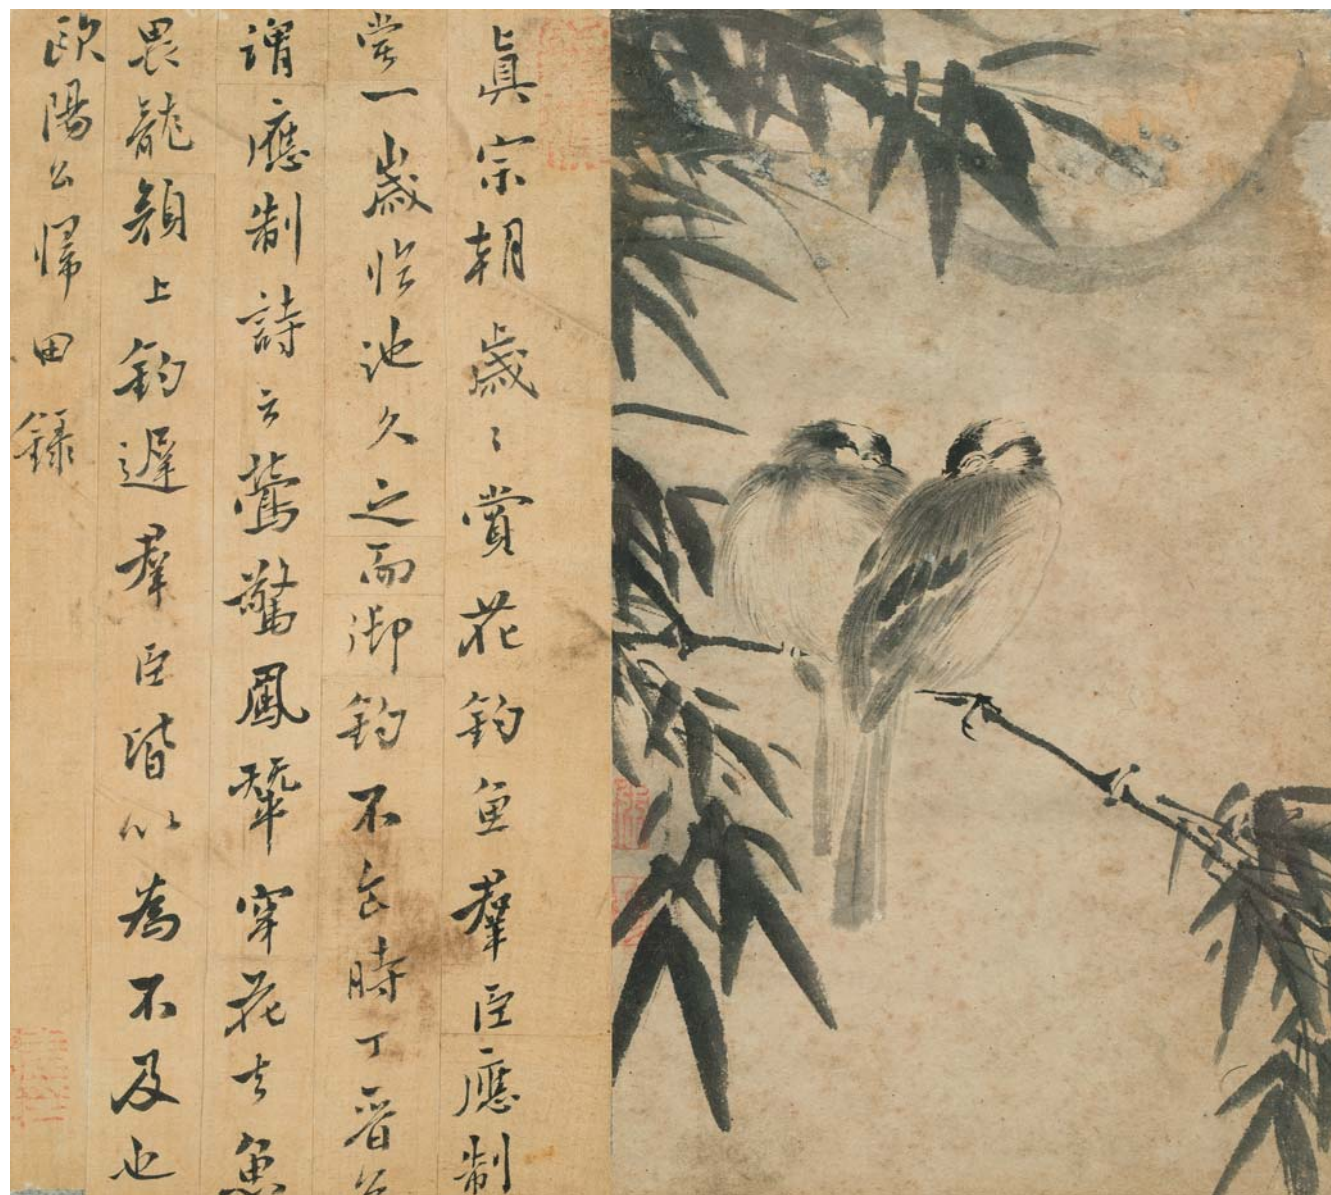 眞宗朝歲〻賞花釣魚羣臣應制
嘗一歲臨池久之而御釣不食時丁晉公
謂應制詩云鶯驚鳳輦穿花去魚
畏龍顏上釣遲羣臣皆以為不及也
歐陽公歸田錄